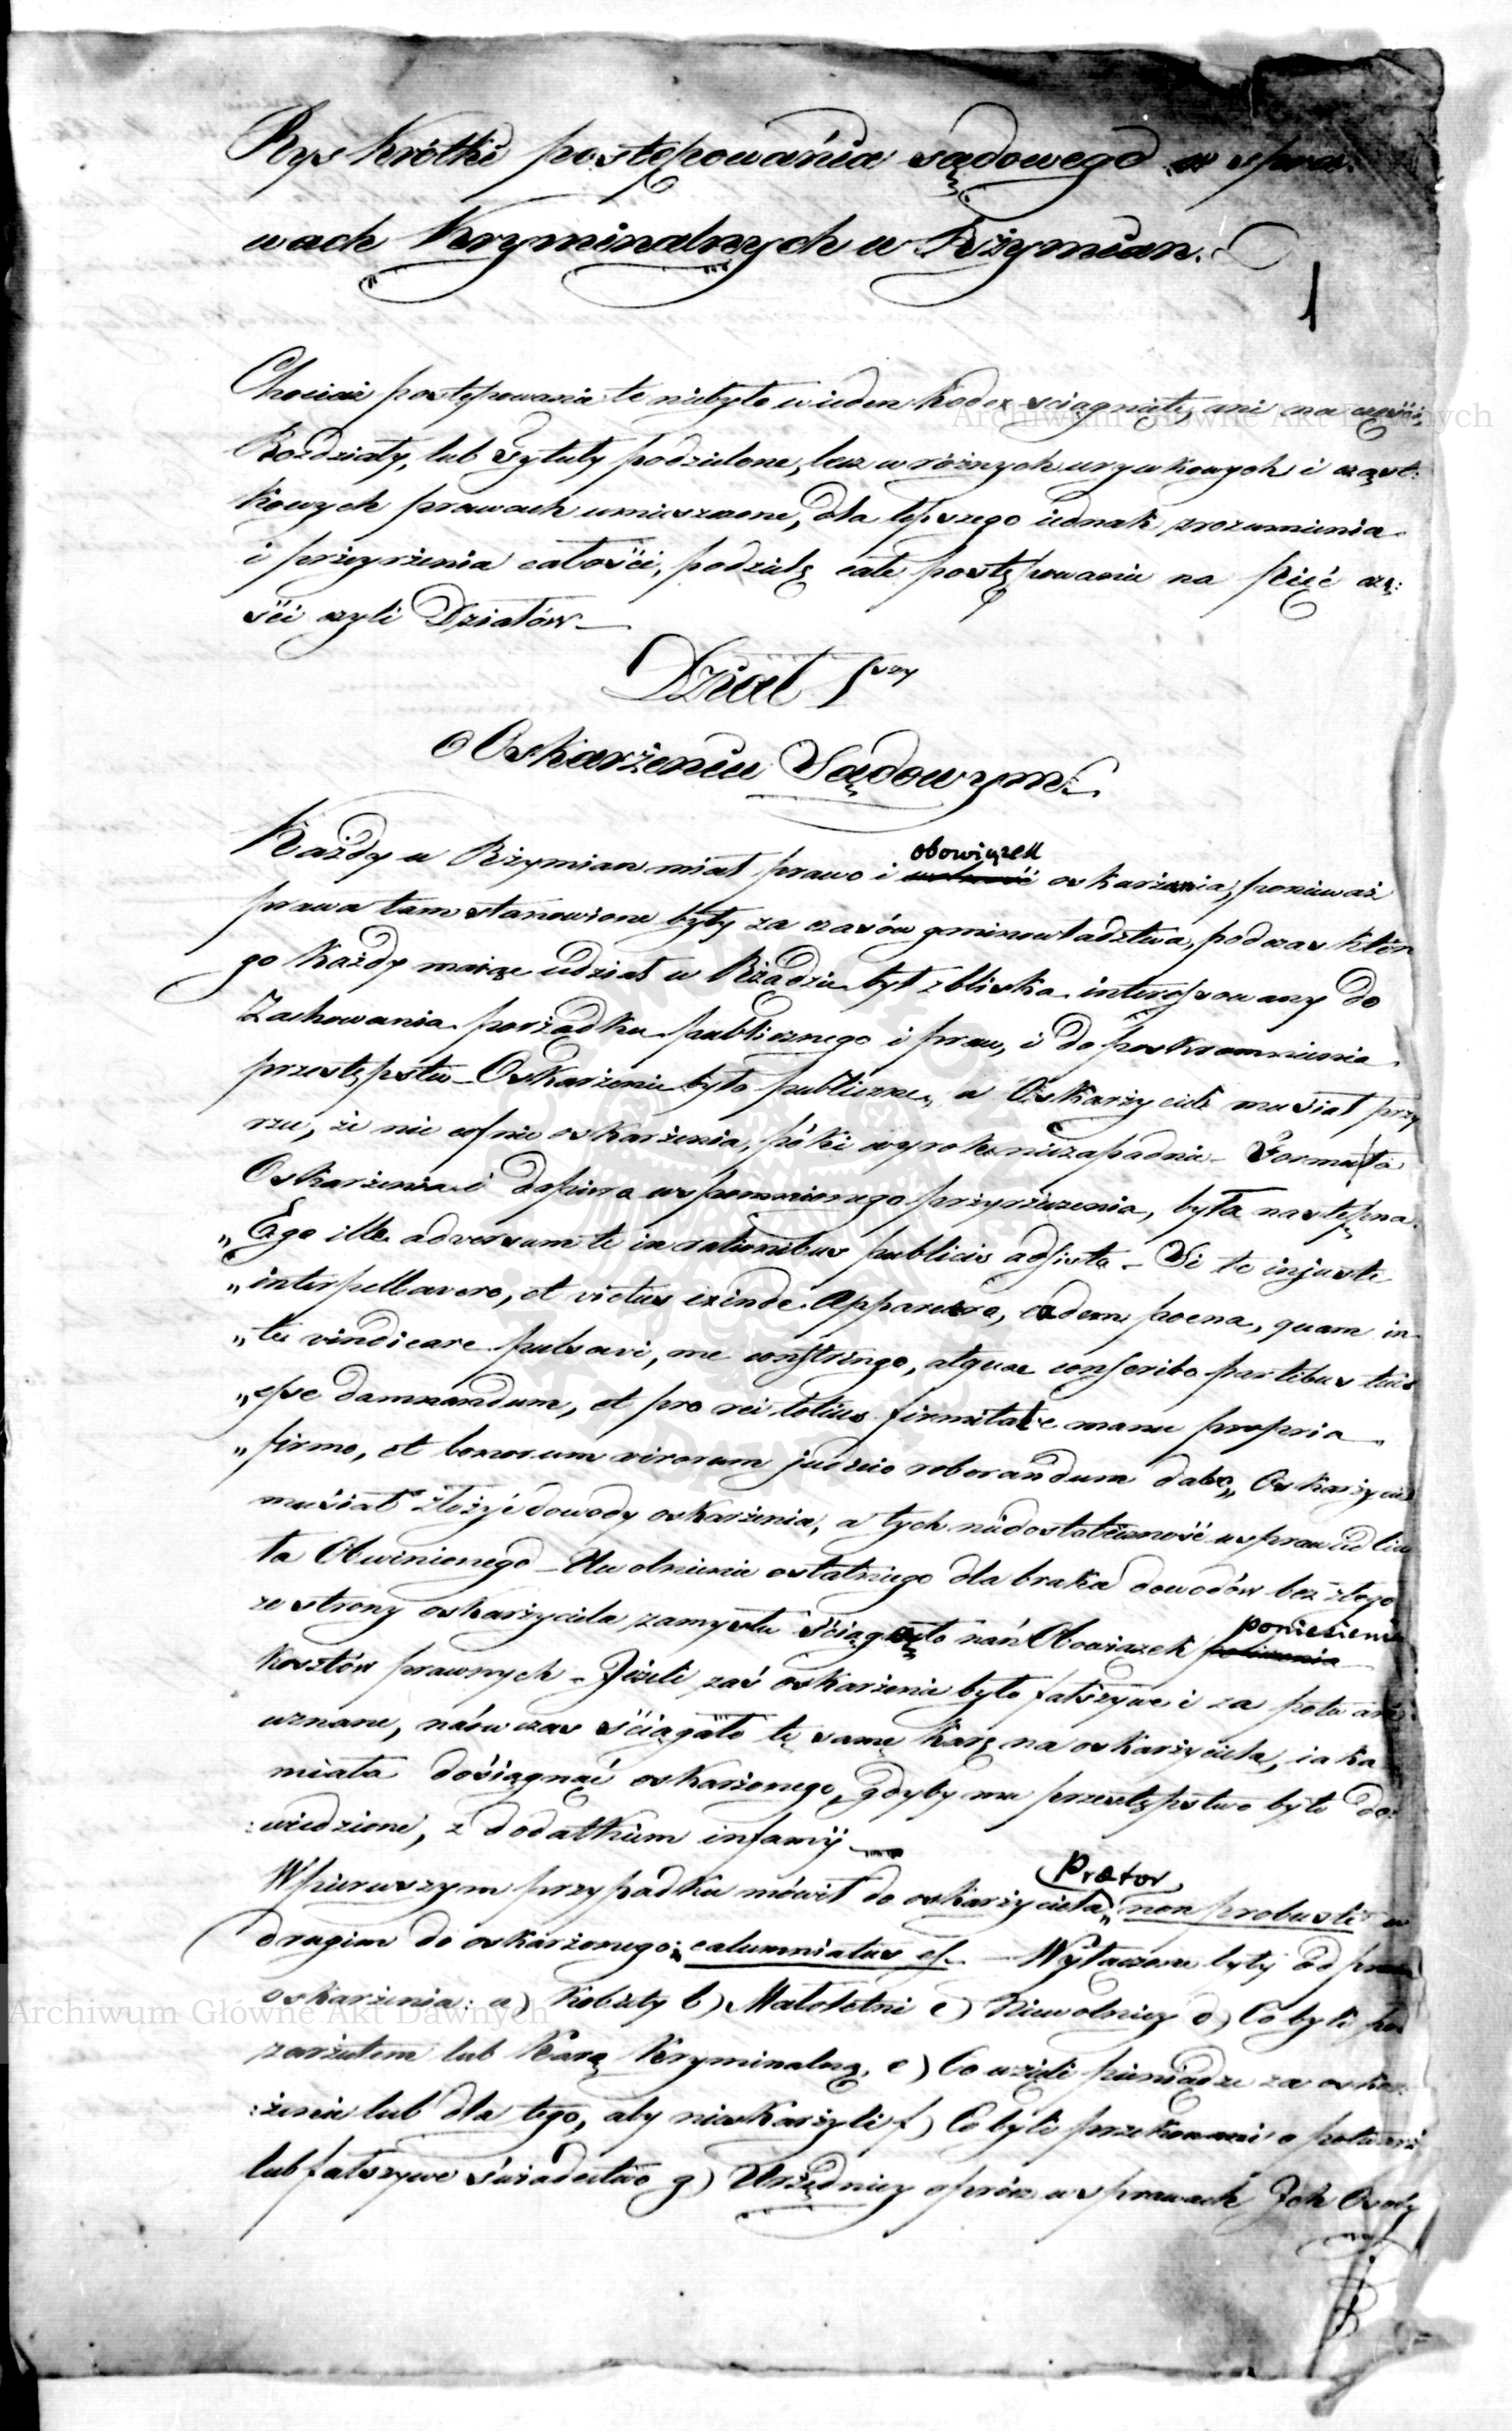 Rys Krótki postępowania sądowego w spra:
wach Kryminalnych u Rżymian.
1
Chociaż postępowanie te niebyło w ieden Kodex sciągnięte, ani na części,
Rozdziały, lub Tytuły podzielone, lecz w różnych urywkowych i cząst:
kowych prawach umieszczone, dla lepszego iednak zrozumienia
i przeyrżenia całości, podzielę całe postępowanie na pięć czę:
ści czyli Działów
Dział 1szy
o Oskarżeniu Sądowym.
obowiązek
Każdy u Rżymian miał prawo i oskarżania, ponieważ
prawa tam stanowione były za czasów gminowładztwa, podczas które
go każdy maiąc udział w Rżądzie był zbliska interessowany do
Zachowania porżądku publicznego i praw, i do poskromnienia
przestępstw_ Oskarżenie było publiczne, a Oskarżyciel musiał przy
rzec, że nie cofnie oskarżenia, póki wyrok niezapadnie_ Formuła
Oskarżenia i dopiero wspomnionego przyrżeczenia, była następna
„Ego ille adversum te in rationibus publicis adsisto_ Si te injuste
„interpellavero, et victus exinde Apparuero, eadem poena, quam in
„te vindicare pulsavi, me constringo, atque conscribo partibus tuis
„esse damnandum, et pro rei totius firmitate manu propria
„firmo, et bonorum virorum judicio roborandum dabo„ Oskarżyciel
musiał złożyć dowody oskarżenia, a tych niedostateczność usprawiedliwia
ła Obwinionego_ Uwolnienie ostatniego dla braku dowodów bez złego
ze strony oskarżyciela zamysłu ściągało nań Obowiązek poniesienia
kosztów prawnych_ Jeżeli zaś oskarżenie było fałszywe i za potwarz
uznane, naówczas ściągało tę samę karę na oskarżyciela, iaka
miała dosiągnąć oskarżonego, gdyby mu przestępstwo było do:
:wiedzione, z dodatkiem infamij
Prætor
W pierwszym przypadku mówił do oskarżyciela, „non probasti w
drugim do oskarżonego: „calumniatus es_ Wyłączone były od prawa
oskarżenia: a) Kobiety b) Małoletni c) Niewolnicy d) Co byli pod
zarżutem lub Karą Kryminalną, e) Co wzięli pieniądze za oskar:
:żenie lub dla tego, aby nieskarżyli f) Co byli przekonani o potwarz
lub fałszywe świadectwo g) Urżędnicy oprócz w sprawach Ich Osoby
Archiwum Główne Akt Dawnych
Archiwum Główne Akt Dawnych